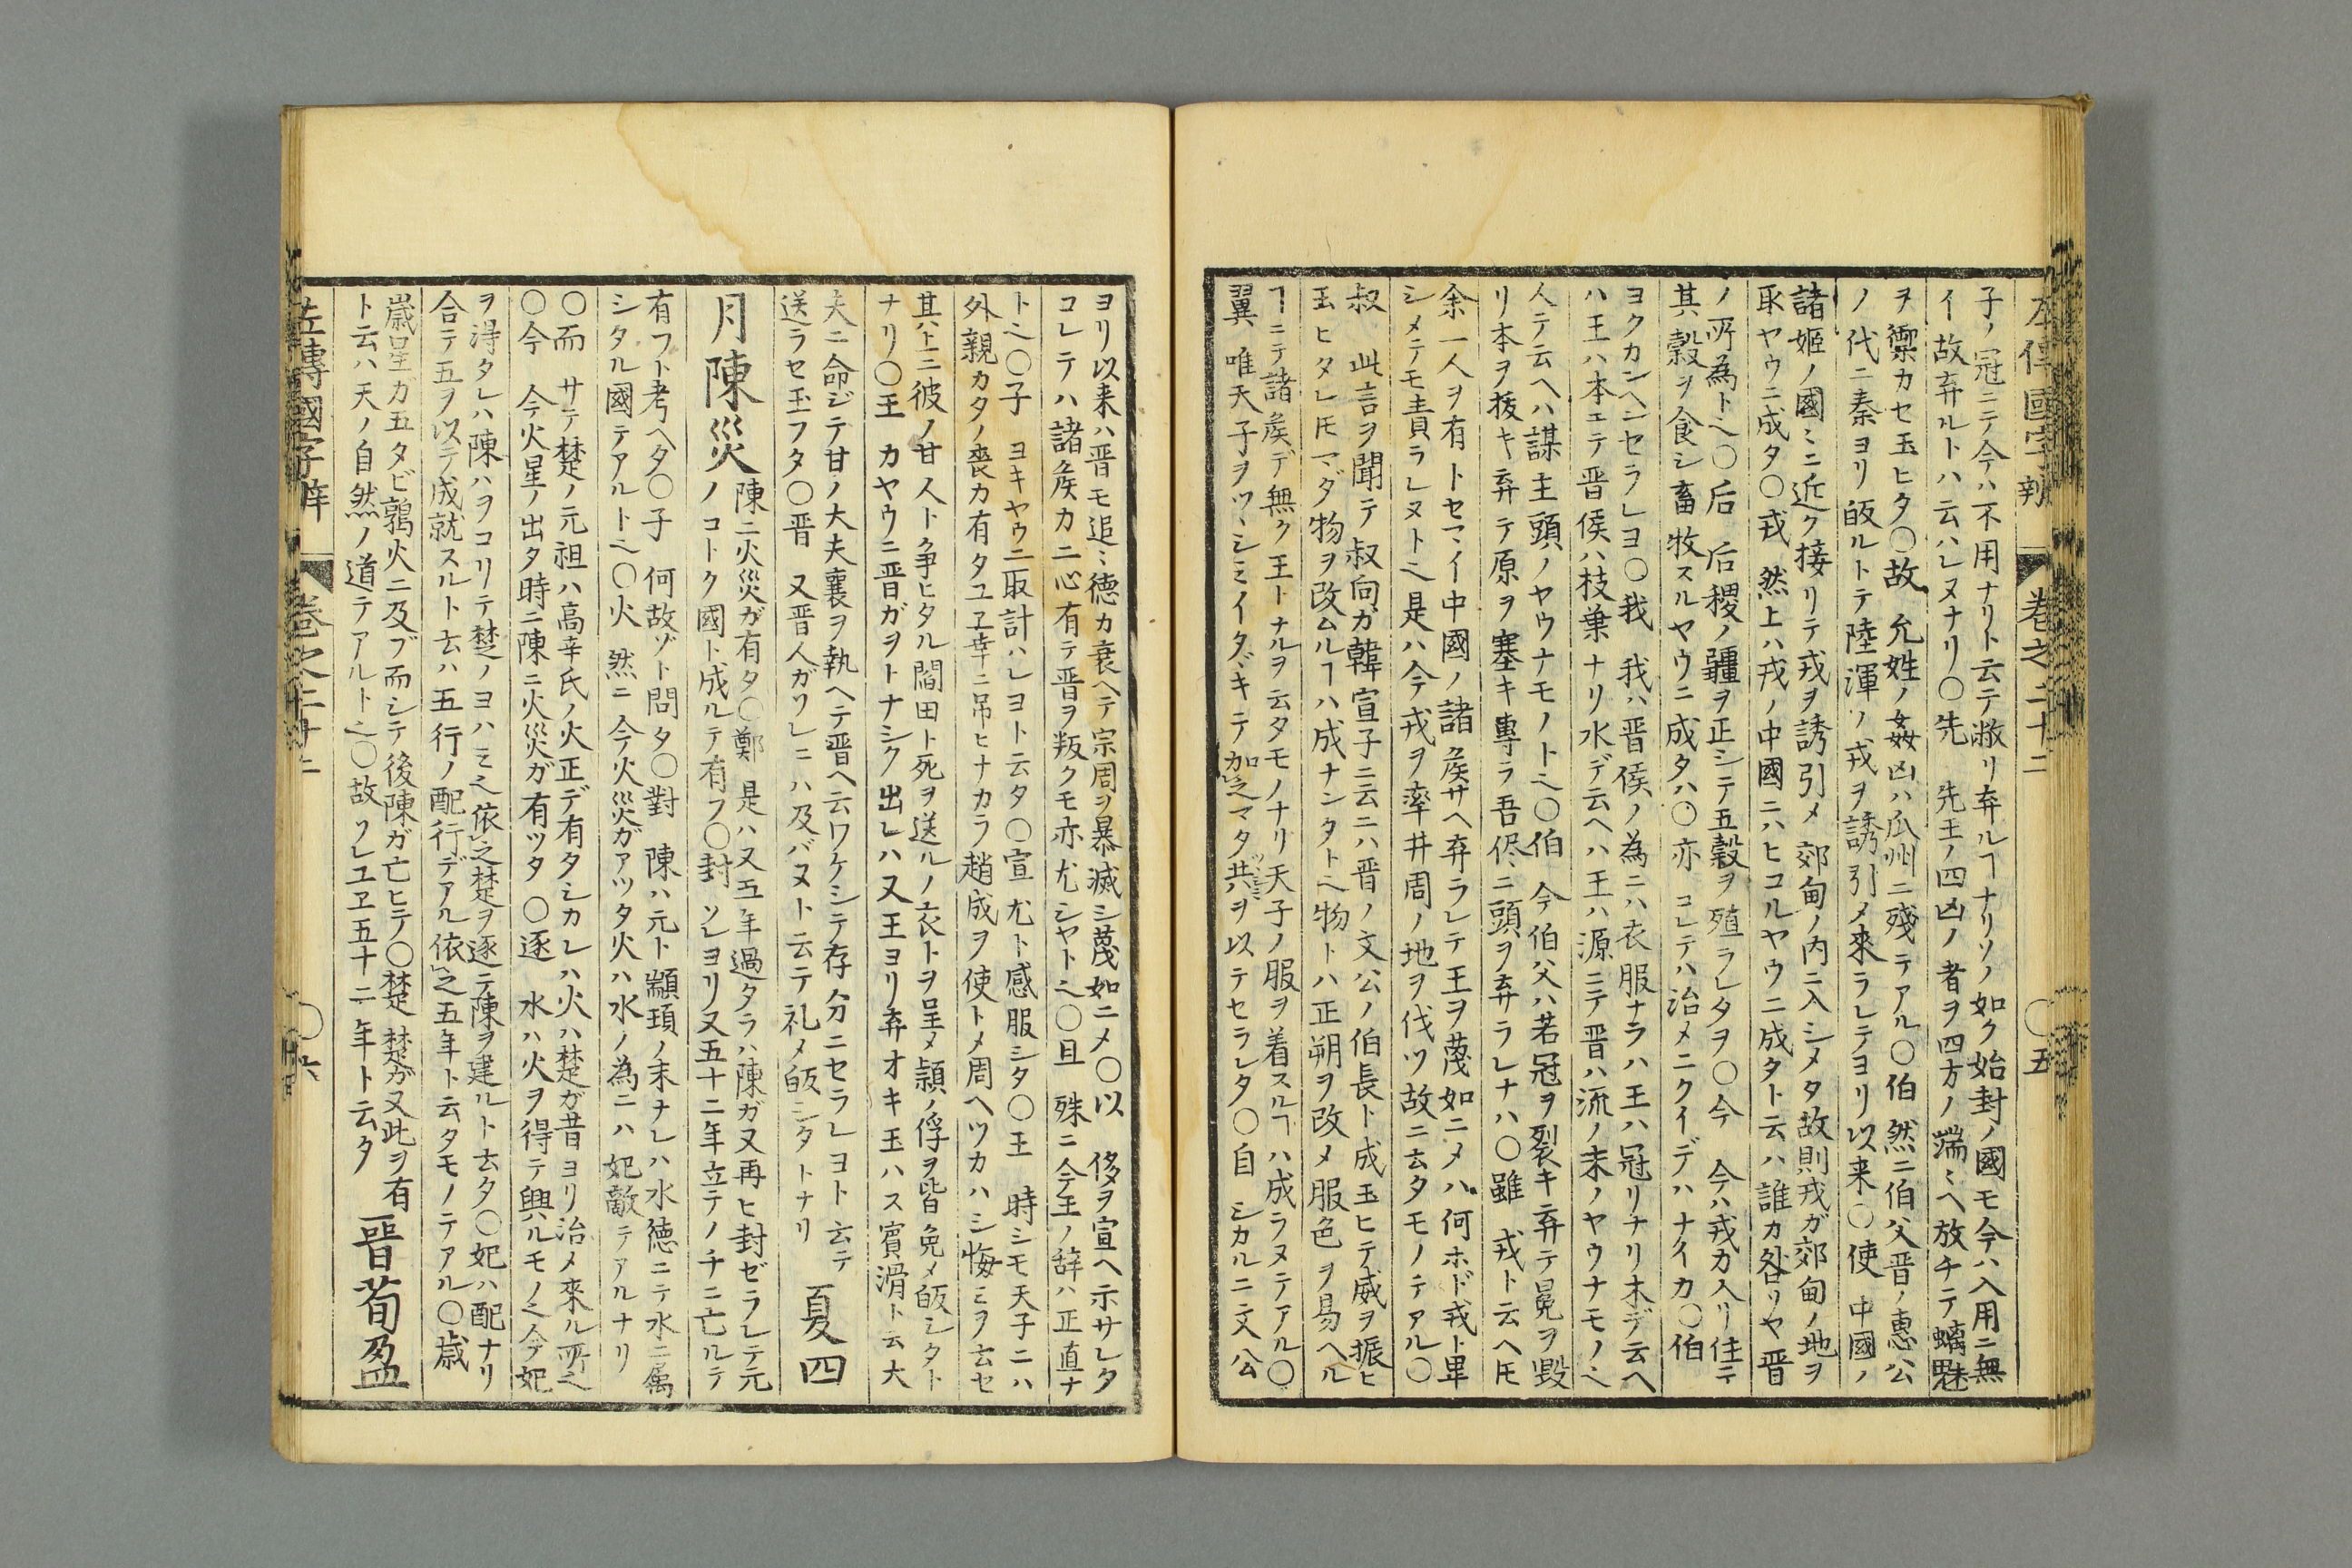 左傳國字辨 卷之二十二 〇五
子ノ冠ニテ今ハ不用ナリト云テ敝リ弃ルヿナリソノ如ク始封ノ國モ今ハ入用ニ無
イ故弃ルトハ云ハレヌナリ〇先 先王ノ四凶ノ者ヲ四方ノ端ミヘ放チテ螭魅
ヲ禦カセ玉ヒタ〇故 允姓ノ姦凶ハ瓜州ニ殘テアル〇伯 然ニ伯父晋ノ惠公
ノ代ニ秦ヨリ皈ルトテ陸渾ノ戎ヲ誘引メ來ラレテヨリ以来〇使 中國ノ
諸姬ノ國ミニ近ク接リテ戎ヲ誘引メ 郊甸ノ内ニ入シメタ故則戎ガ郊甸ノ地ヲ
取ヤウニ成タ〇戎 然上ハ戎ノ中國ニハヒコルヤウニ成タト云ハ誰カ咎リヤ晋
ノ所為トヘ〇后 后稷ノ疆ヲ正シテ五穀ヲ殖ラレタヲ〇今 今ハ戎カ入リ住ニテ
其穀ヲ食シ畜牧スルヤウニ成タハ〇亦 コレテハ治メニクイデハナイカ〇伯
ヨクカンヘニセラレヨ〇我 我ハ晋侯ノ為ニハ衣服ナラハ王ハ冠リナリ木デ云ヘ
ハ王ハ本ヱテ晋侯ハ枝葉ナリ水デ云ヘハ王ハ源ニテ晋ハ流ノ末ノヤウナモノヘ
人テ云ヘハ謀主頭ノヤウナモノトヘ〇伯 今伯父ハ若冠ヲ裂キ弃テ冕ヲ毀
リ本ヲ抜キ弃テ原ヲ塞キ專ラ吾侭ニ頭ヲ弃ラレナハ〇雖 戎ト云ヘ𪜈
余一人ヲ有トセマイ中國ノ諸矦サヘ弃ラレテ王ヲ蔑如ニメハ何ホド戎ト單
シメテモ責ラレヌトヘ是ハ今戎ヲ率井周ノ地ヲ伐ツ故ニ云タモノテアル〇
叔 此言ヲ聞テ叔向ガ韓宣子ニ云ニハ晋ノ文公ノ伯長ト成玉ヒテ威ヲ振ヒ
玉ヒタレ𪜈マダ物ヲ改ムルヿハ成ナンタトヘ物トハ正朔ヲ改メ服色ヲ易ヘル
ヿニテ諸矦デ無ク王トナルヲ云タモノナリ天子ノ服ヲ着スルヿハ成ラヌテアル〇
翼 唯天子ヲツヽシミイタヾキテ加之マタ共ヲ以テセラレタ〇自 シカルニ文公
ヨリ以来ハ晋モ追ミ德カ衰ヘテ宗周ヲ暴滅シ蔑如ニメ〇以 侈ヲ宣ヘ示サレタ
コレテハ諸矦カ二心有テ晋ヲ叛クモ亦尤シヤトヘ〇且 殊ニ今王ノ辞ハ正直ナ
トヘ〇子 ヨキヤウニ取計ハレヨト云タ〇宣 尤ト感服シタ〇王 時シモ天子ニハ
外親カタノ喪カ有タユヱ幸ニ吊ヒナカラ趙成ヲ使トメ周ヘツカハシ悔ミヲ云セ
其上ニ彼ノ甘人ト争ヒタル閻田ト死ヲ送ルノ衣トヲ呈メ頴ノ俘ヲ皆免メ皈シタト
ナリ〇王 カヤウニ晋ガヲトナシク出レハ又王ヨリ弃オキ玉ハス賓滑ト云大
夫ニ命ジテ甘ノ大夫襄ヲ執ヘテ晋ヘ云ワケシテ存分ニセラレヨト云テ
送ラセ玉フタ〇晋 又晋人ガソレニハ及バヌト云テ礼メ皈シタトナリ 夏四
月陳災 陳ニ火災ガ有タ〇鄭 是ハ又五年過タラハ陳ガ又再ヒ封ゼラレテ元
ノコトク國ト成ルテ有フ〇封 ソレヨリ又五十二年立テノチニ亡ルテ
有フト考ヘタ〇子 何故ゾト問タ〇對 陳ハ元ト顓頊ノ末ナレハ水德ニテ水ニ属
シタル國テアルトヘ〇火 然ニ今火災ガアツタ火ハ水ノ為ニハ妃敵テアルナリ
〇而 サテ楚ノ元祖ハ高辛氏ノ火正デ有タシカレハ火ハ楚ガ昔ヨリ治メ來ル所ヘ
〇今 今火星ノ出タ時ニ陳ニ火災ガ有ツタ 〇逐 水ハ火ヲ得テ興ルモノヘ今妃
ヲ淂タレハ陳ハヲコリテ楚ノヨハミヘ依之楚ヲ逐テ陳ヲ建ルト云タ〇妃ハ配ナリ
合テ五ヲ以テ成就スルト云ハ五行ノ配行デアル依之五年ト云タモノテアル〇歳
歳星ガ五タビ鶉火ニ及ブ而シテ後陳ガ亡ヒテ〇楚 楚ガ又此ヲ有
ト云ハ天ノ自然ノ道テアルトヘ〇故 ソレユヱ五十二年ト云タ 晋荀盈
左傳國字辨 卷之二十二 〇六